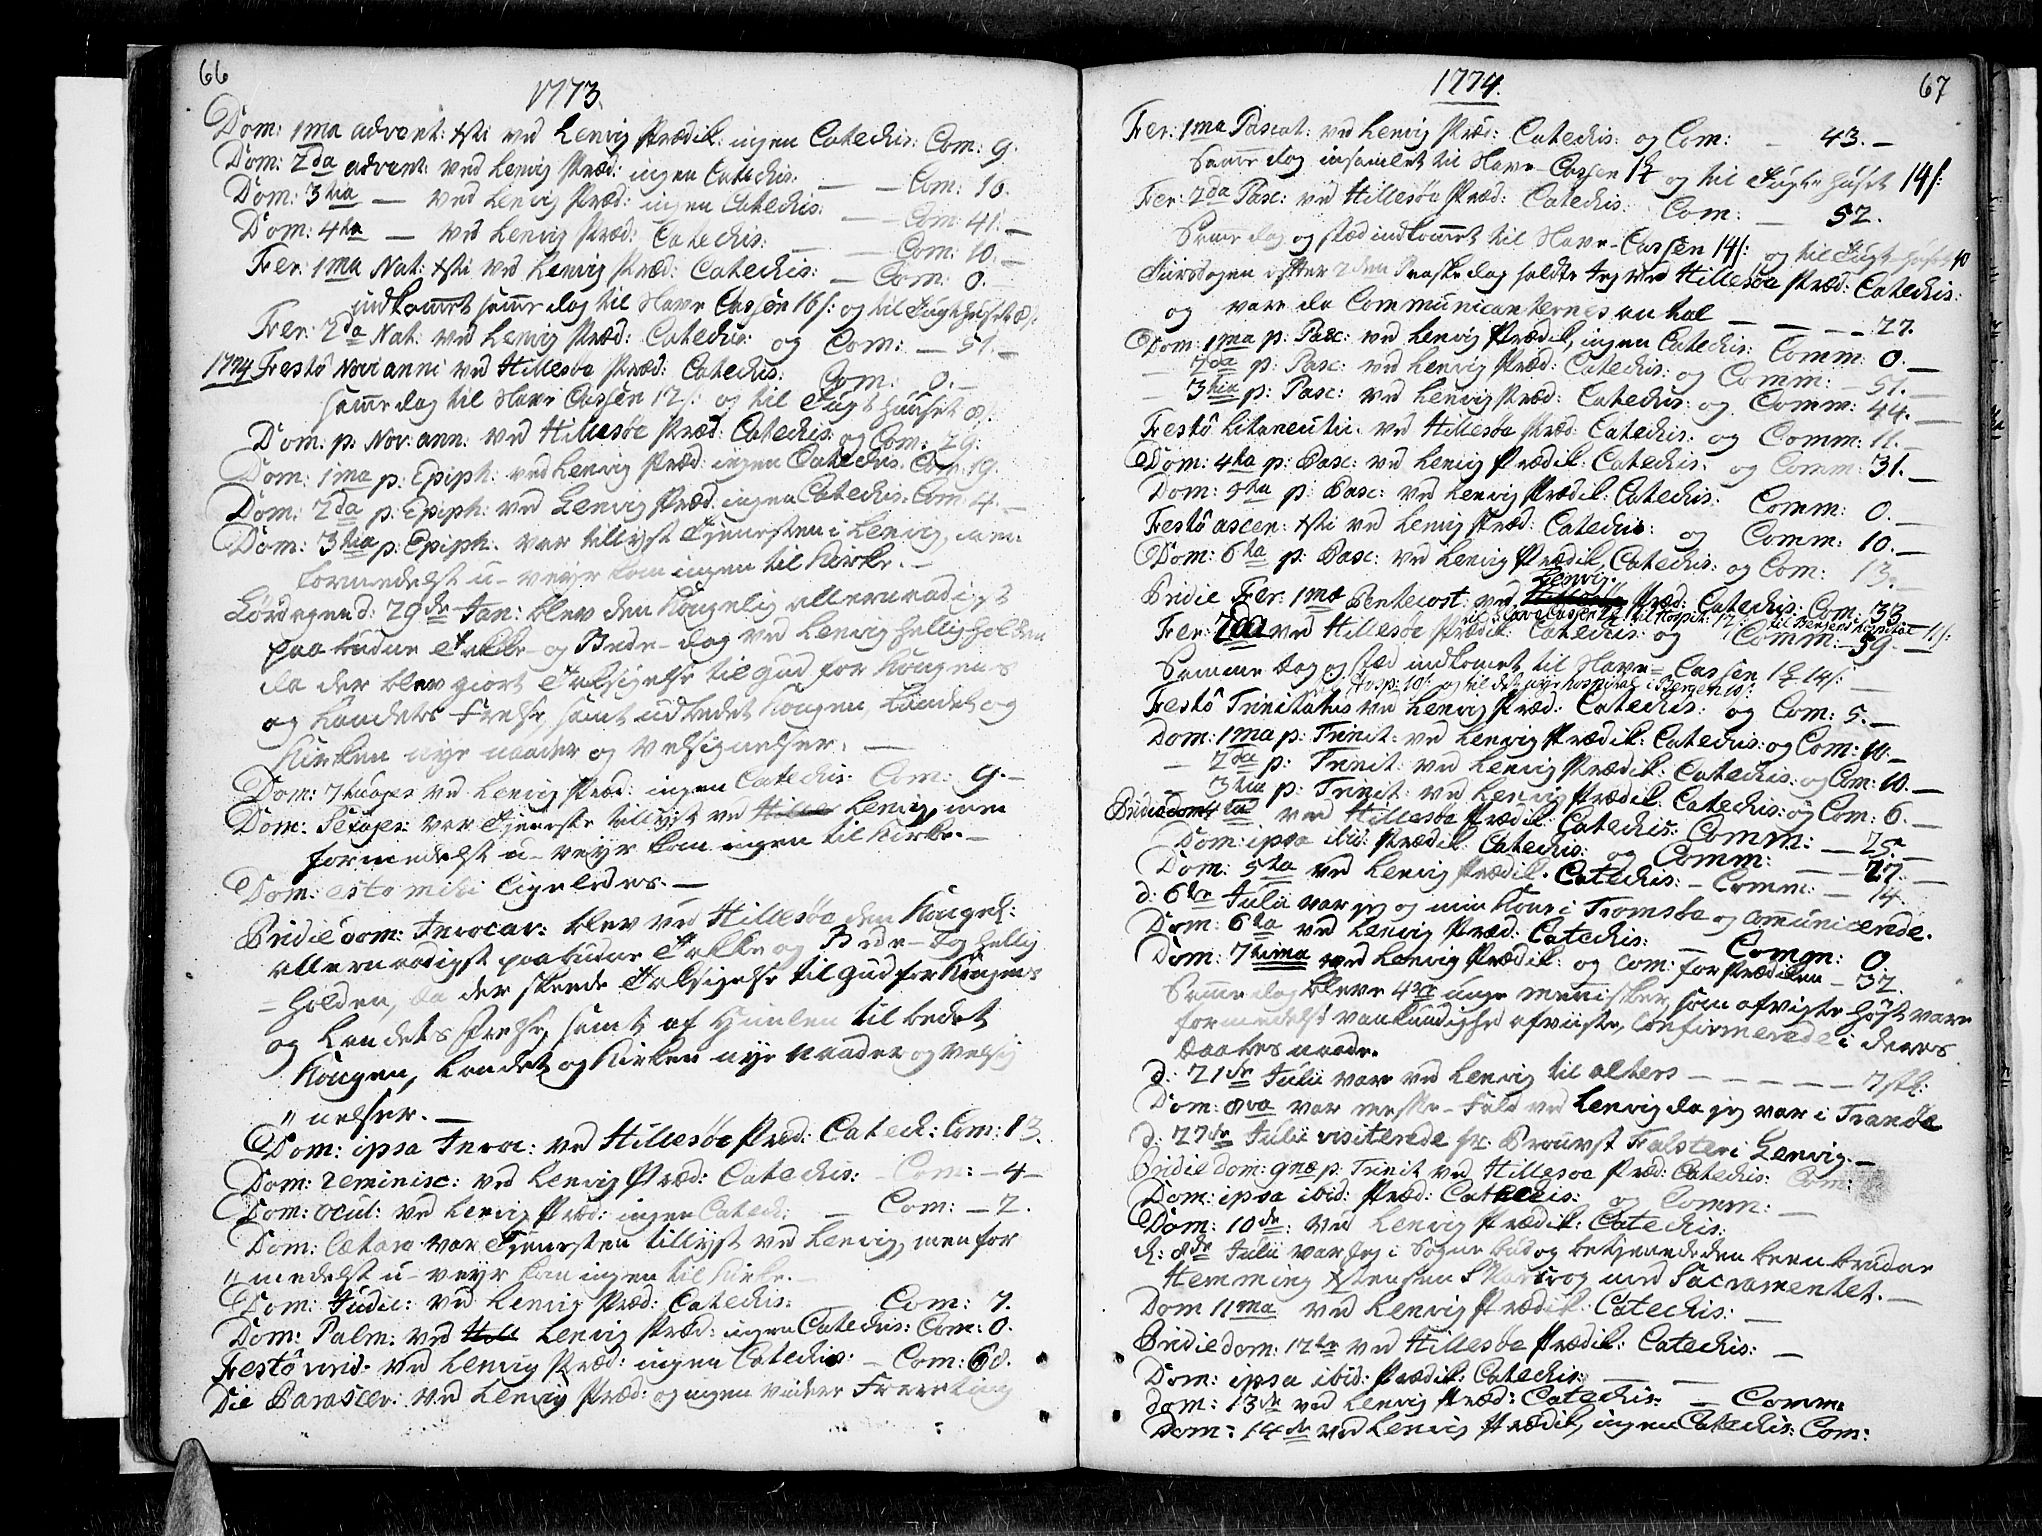 66
1773.
Dom: 1ma advent: xsti ved Lenvig Prædik: ingen Catechis: Com: 9.
Dom: 2da advent: ved Lenvig Præd: ingen Catechis: — — Com: 16.
Dom: 3tia — ved Lenvig Præd: ingen Catechis: — — Com: 41. —
Dom: 4ta — ved Lenvig Præd: Catechis: — Com: 10. —
Fer: 1ma Nat: xsti ved Lenvig Præd: Catechis: — Com: 0. —
indkomet samme dag til Have Cassen 16 s: og til Tugthuset 8 s:
Fer: 2da Nat: ved Lenvig Præd: Catechis: og Com: — 51. —
1774 Festô Novi anni ved Hillesøe Præd: Catechis: Com: 0. —
samme dag til Have Cassen 12 s: og til Tugt huuset 8 s:
Dom: p: Nov: ann: ved Hillesøe Præd: Catechis: og Com: 29.
Dom: 1ma p: Epiph: ved Lenvig Præd: ingen Catechis: Com: 19.
Dom: 2da p: Epiph: ved Lenvig Præd: ingen Catechis: Com: 4. —
Dom: 3tia p: Epiph: var tillyst Tjenesten i Lenvig, men
formedelst u-veyr kom ingen til Kirke. —
Løverdagen d: 29de Jan: blev den Kongelig allernaadigst
paabudne Takke- og Bede-dag ved Lenvig helligholden
da der blev giort Taksigelse til Gud for Kongens
og Landets Frelse, samt udbedet Kongen, Landet og
Kirken nye naader og velsignelser. —
Dom: 7tuages: ved Lenvig Præd: ingen Catechis: Com: 9. —
Dom: Sexages: var Tjeneste tillyst ved Lenvig, men
formedelst u-veyr kom ingen til Kirke. —
Dom: esto mihi ligeledes. —
Pridie dom: Invocav: blev ved Hillesøe den Kongel:
allernaadigst paabudne Takke og Bede-Dag hellig
=holden, da der skeede Taksigelse til Gud for Kongens
og Landets Frelse, samt af Himlen tilbedet
Kongen, Landet og Kirken nye Naader og velsig
"nelser. —
Dom: ipsa Invoc: ved Hillesøe Præd: Catech: Com: 13.
Dom: Reminisc: ved Lenvig Præd: Catechis: — Com: — 4 —
Dom: ocul: ved Lenvig Præd: ingen Catech: — Com: — 2.
Dom: Lætare var Tjenesten tillyst ved Lenvig, men for
"medelst u-veyr kom ingen til Kirke. —
Dom: Judic: ved Lenvig Præd: Catechis: Com: 7.
Dom: Palm: ved Lenvig Præd: ingen Catechis: Com: 0.
Festô virid: ved Lenvig Præd: ingen Catechis: — Com: 60.
Die Parascev: ved Lenvig Præd: og ingen videre Forretning
67
1774.
Fer: 1ma Pascat: ved Lenvig Præd: Catechis: og Com: — 43. —
Samme dag insamlet til Have-Cassen og til Tugte huset 14 s:
Fer: 2da Pasc: ved Hillesøe Præd: Catechis: Com: — 52.
Samme dag og stæd indkomet til Have-Cassen 14 s: og til Tugt-huset 10
Tiirsdagen efter 2den Paaske dag holdte Jeg ved Hillesøe Præd: Catechis:
og vare da Communicanternes antal — — — — 27.
Dom: 1ma p: Pasc: ved Lenvig Prædik, ingen Catechis: Comm: 0. —
— 2da p: Pasc: ved Lenvig Præd: Catechis: og Comm: — 51. —
— 3tia p: Pasc: ved Lenvig Præd: Catechis: og Comm: 44. —
Festô Litaneutic: ved Hillesøe Præd: Catechis: og Comm: 11. —
Dom: 4ta p: Pasc: ved Lenvig Prædik: Catechis: og Comm: 31. —
Dom: 5ta p: Pasc: ved Lenvig Prædik: Catechis: Comm: 0. —
Festô ascen: xsti ved Lenvig Præd: Catechis: og Comm: 10. —
Dom: 6ta p: Pasc: ved Lenvig Prædik, Catechis: og Com: 13. —
Pridie Fer: 1mæ Pentecost: ved Lenvig. Præd: Catechis: Com: 33
Fer: 2da ved Hillesøe Prædik: Catechis: og Comm: 59. —
Samme Dag og stæd indkomet til Have-Cassen 14 s: —
Hosp: 10 s: og til det nye hospital i Bergen 10 s:
Festô Trinitatis ved Lenvig Præd: Catechis: og Com: 5. —
Dom: 1ma p: Trinit: ved Lenvig Prædik: Catechis: og Com: 10. —
— 2da p: Trinit: ved Lenvig Prædik: Catechis: og Com: 10. —
— 3tia p: Trinit: ved Lenvig Prædik: Catechis: og Com: 6. —
Pridie dom: 4tæ ved Hillesøe Prædik: Catechis: Comm: — 25. —
Dom: ipsa ibid: Prædik: Catechis: og Comm: — 27. —
Dom: 5ta ved Lenvig Prædik: Catechis: — Comm: — 14.
d: 6te Julii var jeg og min Kone i Tromsøe og communicerede.
Dom: 6ta ved Lenvig Præd: Catechis: — Comm: 0
Dom: 7tima ved Lenvig Prædik: og Com: for Prædiken — 32.
Samme dag bleve 4re unge Mennisker, som afvigte Høst vare
formedelst vankundighed afviiste, confirmerede i deres
Daabes naade.
d: 21de Julii vare ved Lenvig til alters — — — — — 7 stk:
Dom: 8va var messe-Fald ved Lenvig da jeg var i Tranøe
d: 27de Julii visiterede Hr: Provst Falster i Lenvig. —
Pridie dom: 9næ p: Trinit ved Hillesøe Præd: Catechis: Com:
Dom: ipsa ibid: Præd: Catechis: og Comm: —
Dom: 10de: ved Lenvig Prædik: Catechis:
d: 8de Julii var Jeg i Sogne bud og betjenede den been brudne
Hemming xstensen med Sacramentet. —
Dom 11ma ved Lenvig Prædik: Catechis: —
Pridie dom: 12te ved Hillesøe Prædik: Catechis: —
Dom: ipsa ibid: Prædik: Catechis: —
Dom: 13de ved Lenvig Præd: Catechis: — Comm:
Dom: 14de ved Lenvig Prædik, ingen Catechis: Com: